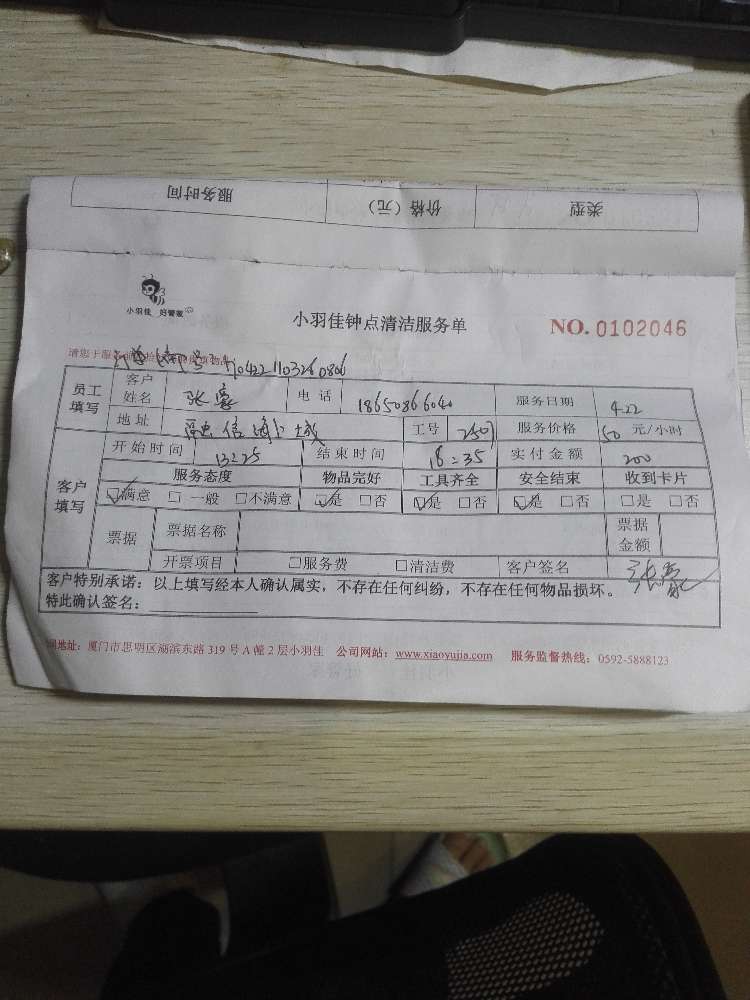 服务时间 价格（元） 类型
小羽佳 好管家
小羽佳钟点清洁服务单 NO. 0102046
请您于服务
1704221103260806
员工填写 客户姓名 张豪 电话 18650866040 服务日期 4.22
地址 工号 2507 服务价格 50 元/小时
客户填写 开始时间 13:25 结束时间 16:35 实付金额 200
服务态度 物品完好 工具齐全 安全结束 收到卡片
☑满意 □一般 □不满意 ☑是 □否 ☑是 □否 ☑是 □否 □是 □否
票据 票据名称 票据金额
开票项目 □服务费 □清洁费 客户签名 张豪
客户特别承诺：以上填写经本人确认属实，不存在任何纠纷，不存在任何物品损坏。
特此确认签名：
地址：厦门市思明区湖滨东路 319 号 A 幢 2 层小羽佳 公司网站：www.xiaoyujia.com 服务监督热线：0592-5888123